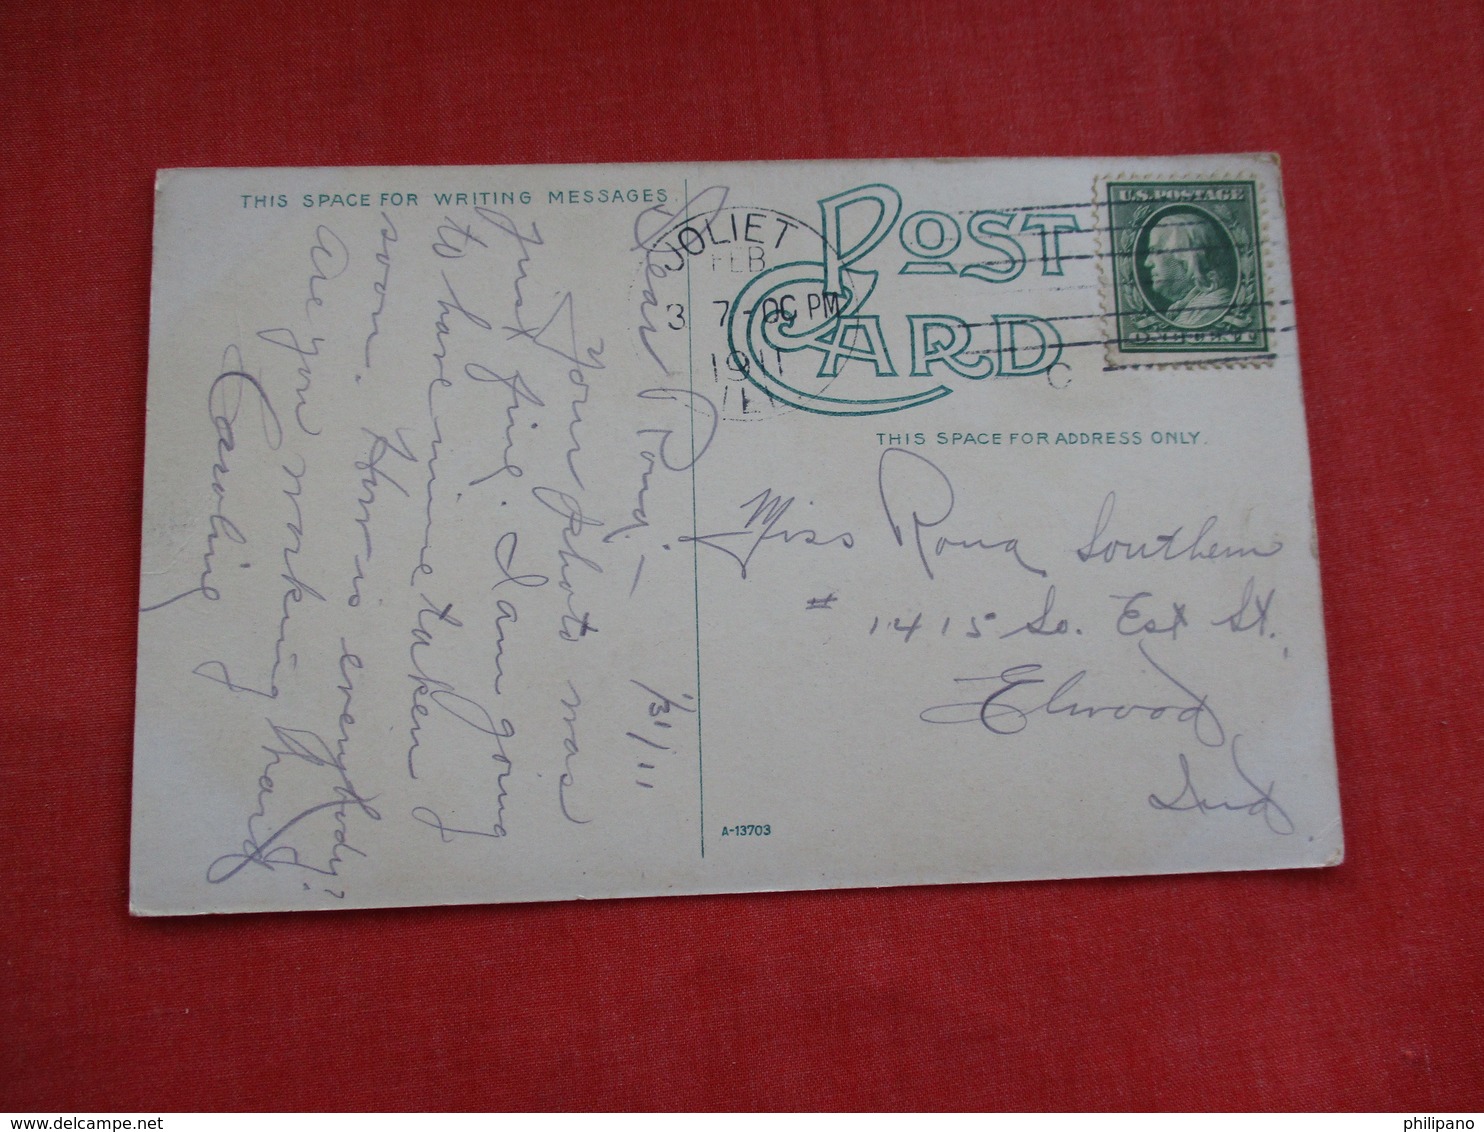 THIS SPACE FOR WRITING MESSAGES.
1/31/11
Dear Rona; —
Your photo was
just fine. I am going
to have mine taken
soon. How is everybody?
Are you working hard
Caroline
POST CARD
JOLIET
FEB
3 7-00 PM
1911
ILL
C
U.S. POSTAGE
ONE CENT
THIS SPACE FOR ADDRESS ONLY.
Miss Rona Southern
# 1415 So. Est St.
Elwood
Ind.
A-13703
philipano